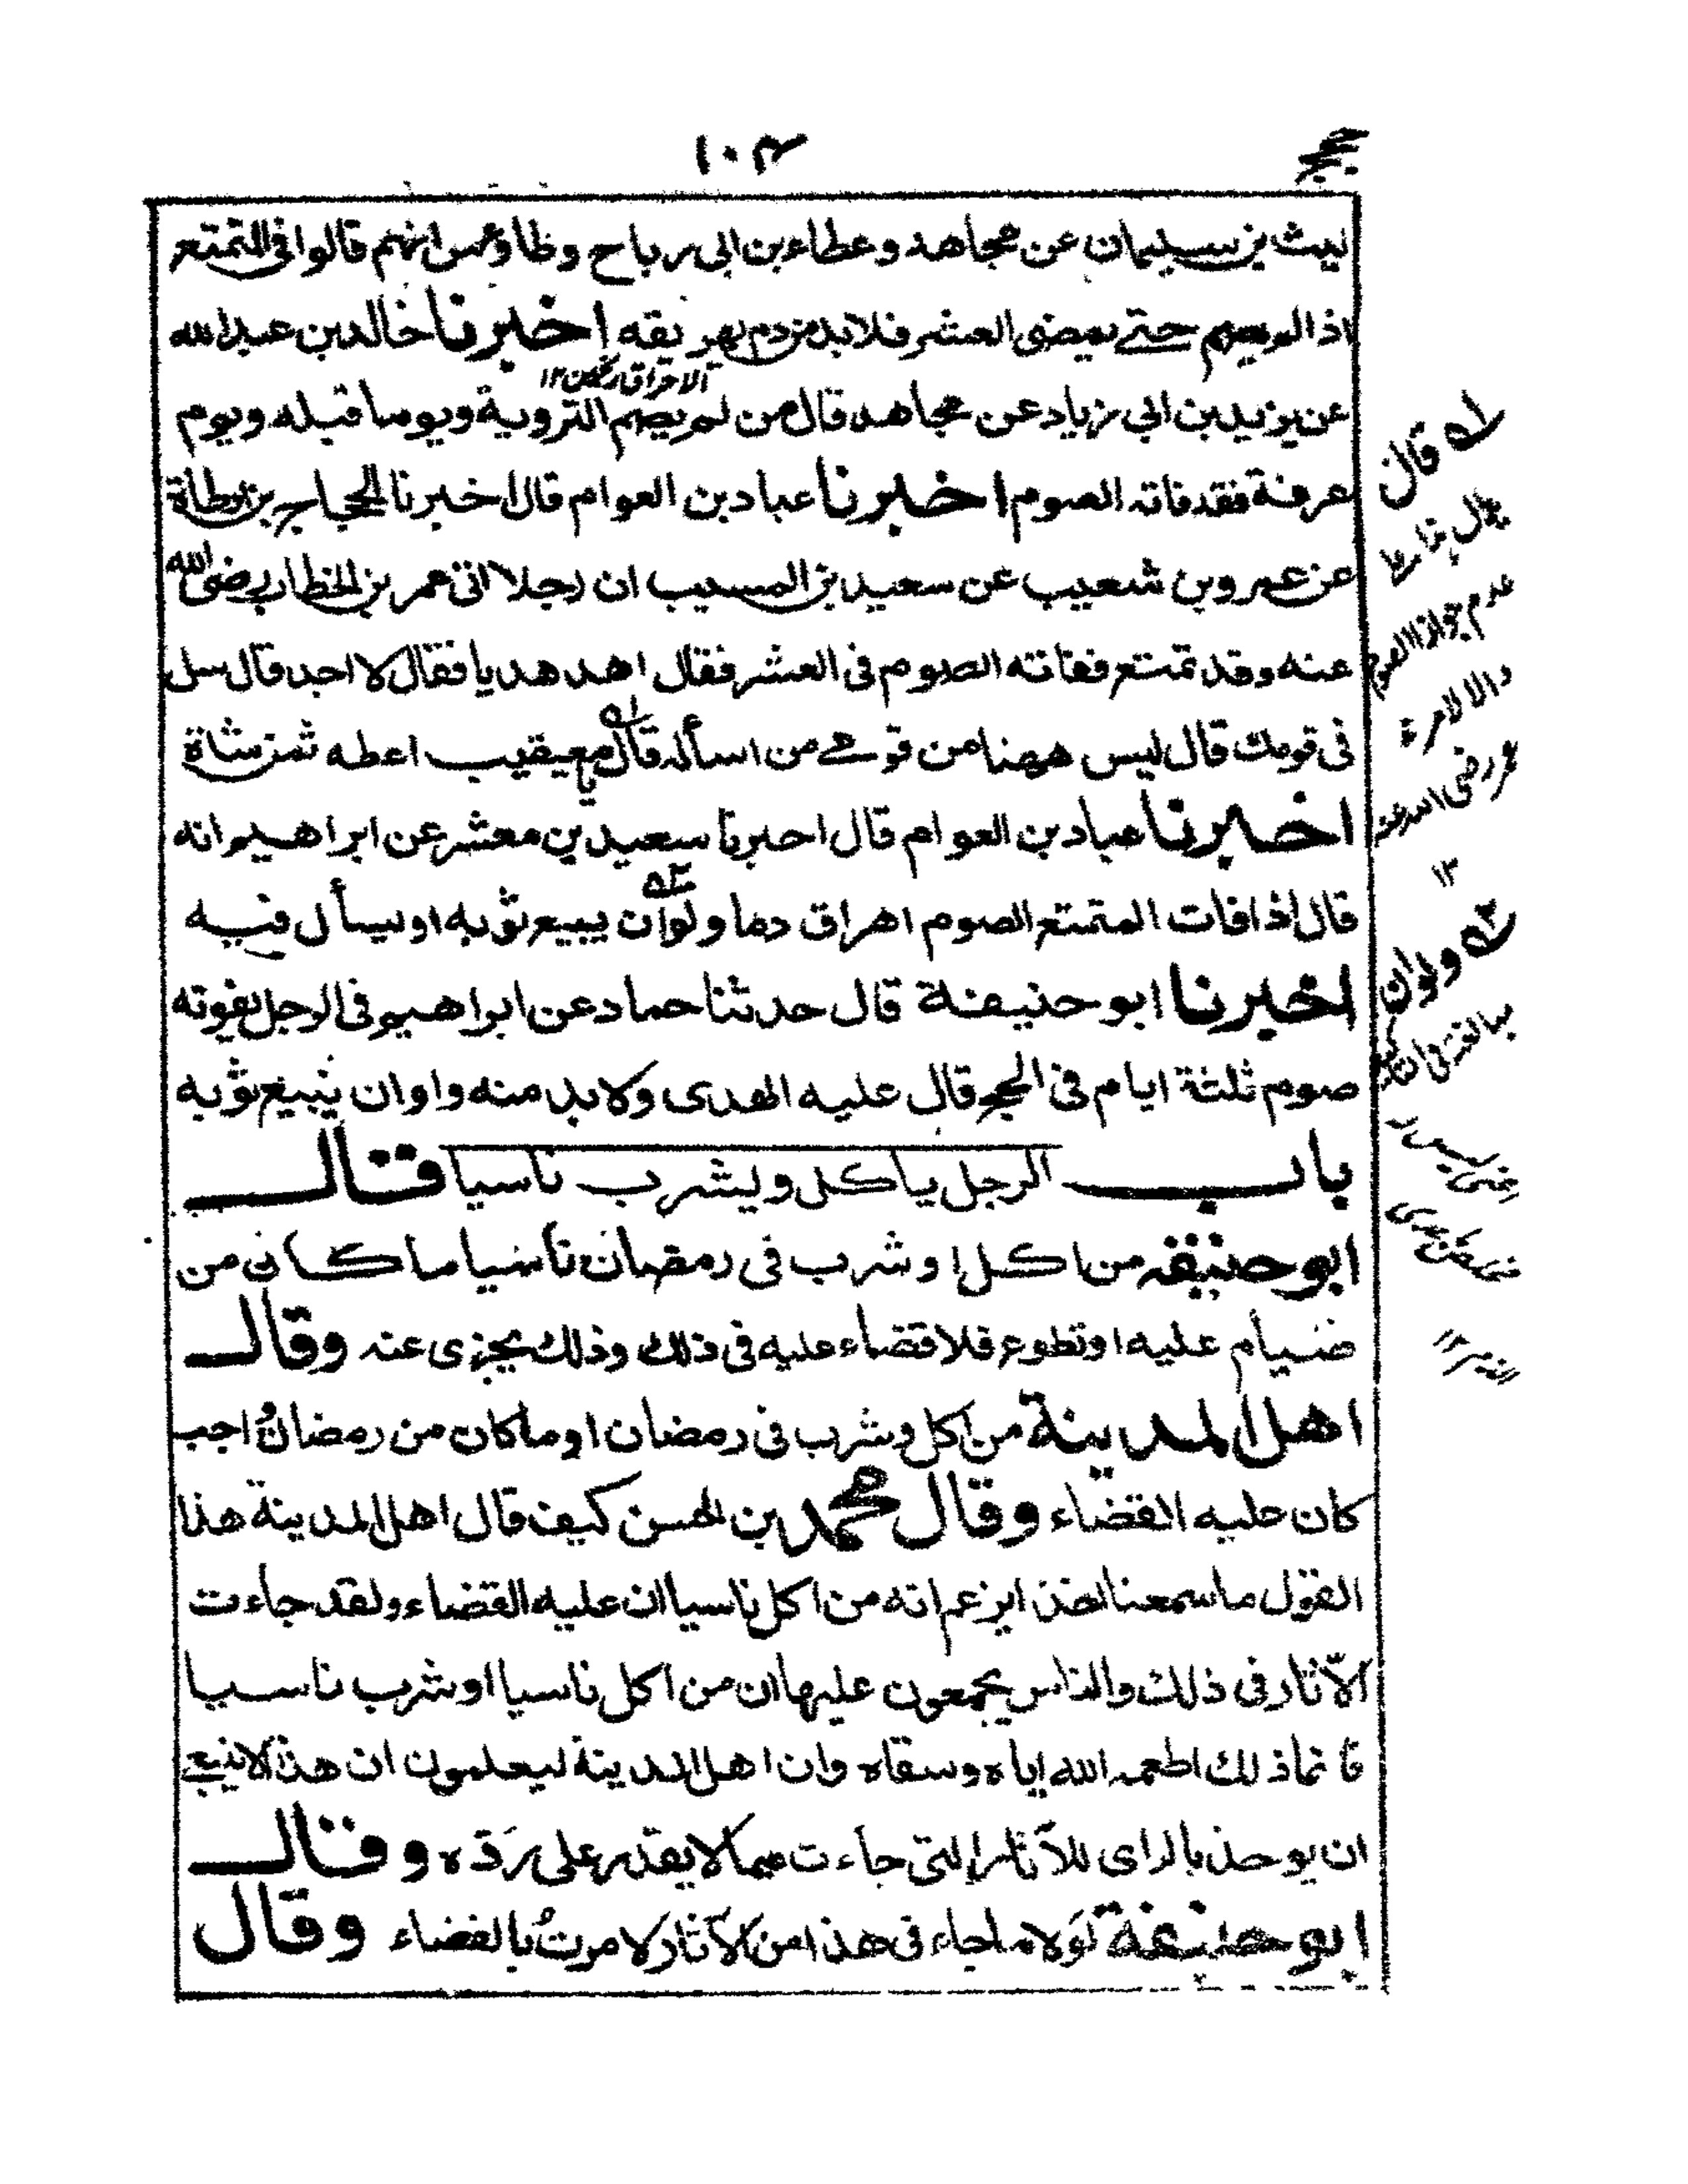 حجج
١٠٤
ليث بن سليمان عن مجاهد وعطاء بن ابى رباح وطاؤس انهم قالوا فى المتمتع
اذا لم يصم حتے يمضى العشر فلا بد من دم يهريقه اخبرنا خالد بن عبد الله
عن يزيد بن ابي زياد عن مجاهد قال من لم يصم التروية ويوما قبله ويوم
عرفة فقد فاته الصوم اخبرنا عباد بن العوام قال اخبرنا الحجاج بن ارطاة
عن عمرو بن شعيب عن سعيد بن المسيب ان رجلا اتى عمر بن الخطاب رضى الله
عنه وقد تمتع ففاته الصوم فى العشر فقال اهد هديا فقال لا اجد قال سل
فى قومك قال ليس ههنا من قومے من اسأله قال يا معيقيب اعطه ثمن شاة
اخبرنا عباد بن العوام قال اخبرنا سعيد بن معشر عن ابراهيم انه
قال اذا فات المتمتع الصوم اهراق دما ولو ان يبيع ثوبه او يسأل فيه
اخبرنا ابو حنيفة قال حدثنا حماد عن ابراهيم فى الرجل يفوته
صوم ثلثة ايام فى الحج قال عليه الهدى ولا بد منه واوان يبيع ثوبه
باب الرجل ياكل ويشرب ناسيا قال
ابو حنيفه من اكل او شرب فى رمضان ناسيا ما كان من
صيام عليه او تطوع فلا قضاء عليه فى ذلك وذلك يجزى عنه وقال
اهل المدينة من اكل وشرب فى رمضان او ما كان من رمضان واجب
كان عليه القضاء وقال محمد بن الحسن كيف قال اهل المدينة هذا
القول ما سمعنا احدا يزعم انه من اكل ناسيا ان عليه القضاء ولقد جاءت
الآثار فى ذلك والناس يجمعون عليها ان من اكل ناسيا او شرب ناسيا
فانما ذلك اطعمه الله اياه وسقاه وان اهل المدينة ليعلمون ان هذا لا ينبغے
ان يوخذ بالراى للآثار التى جاءت مما لا يقدر على رده وقال
ابو حنيفة لولا ما جاء فى هذا من الآثار لامرت بالقضاء وقال
قال
عدم جواز الصوم
والا لامره
عمر رضى الله عنه
١٢
ولو ان